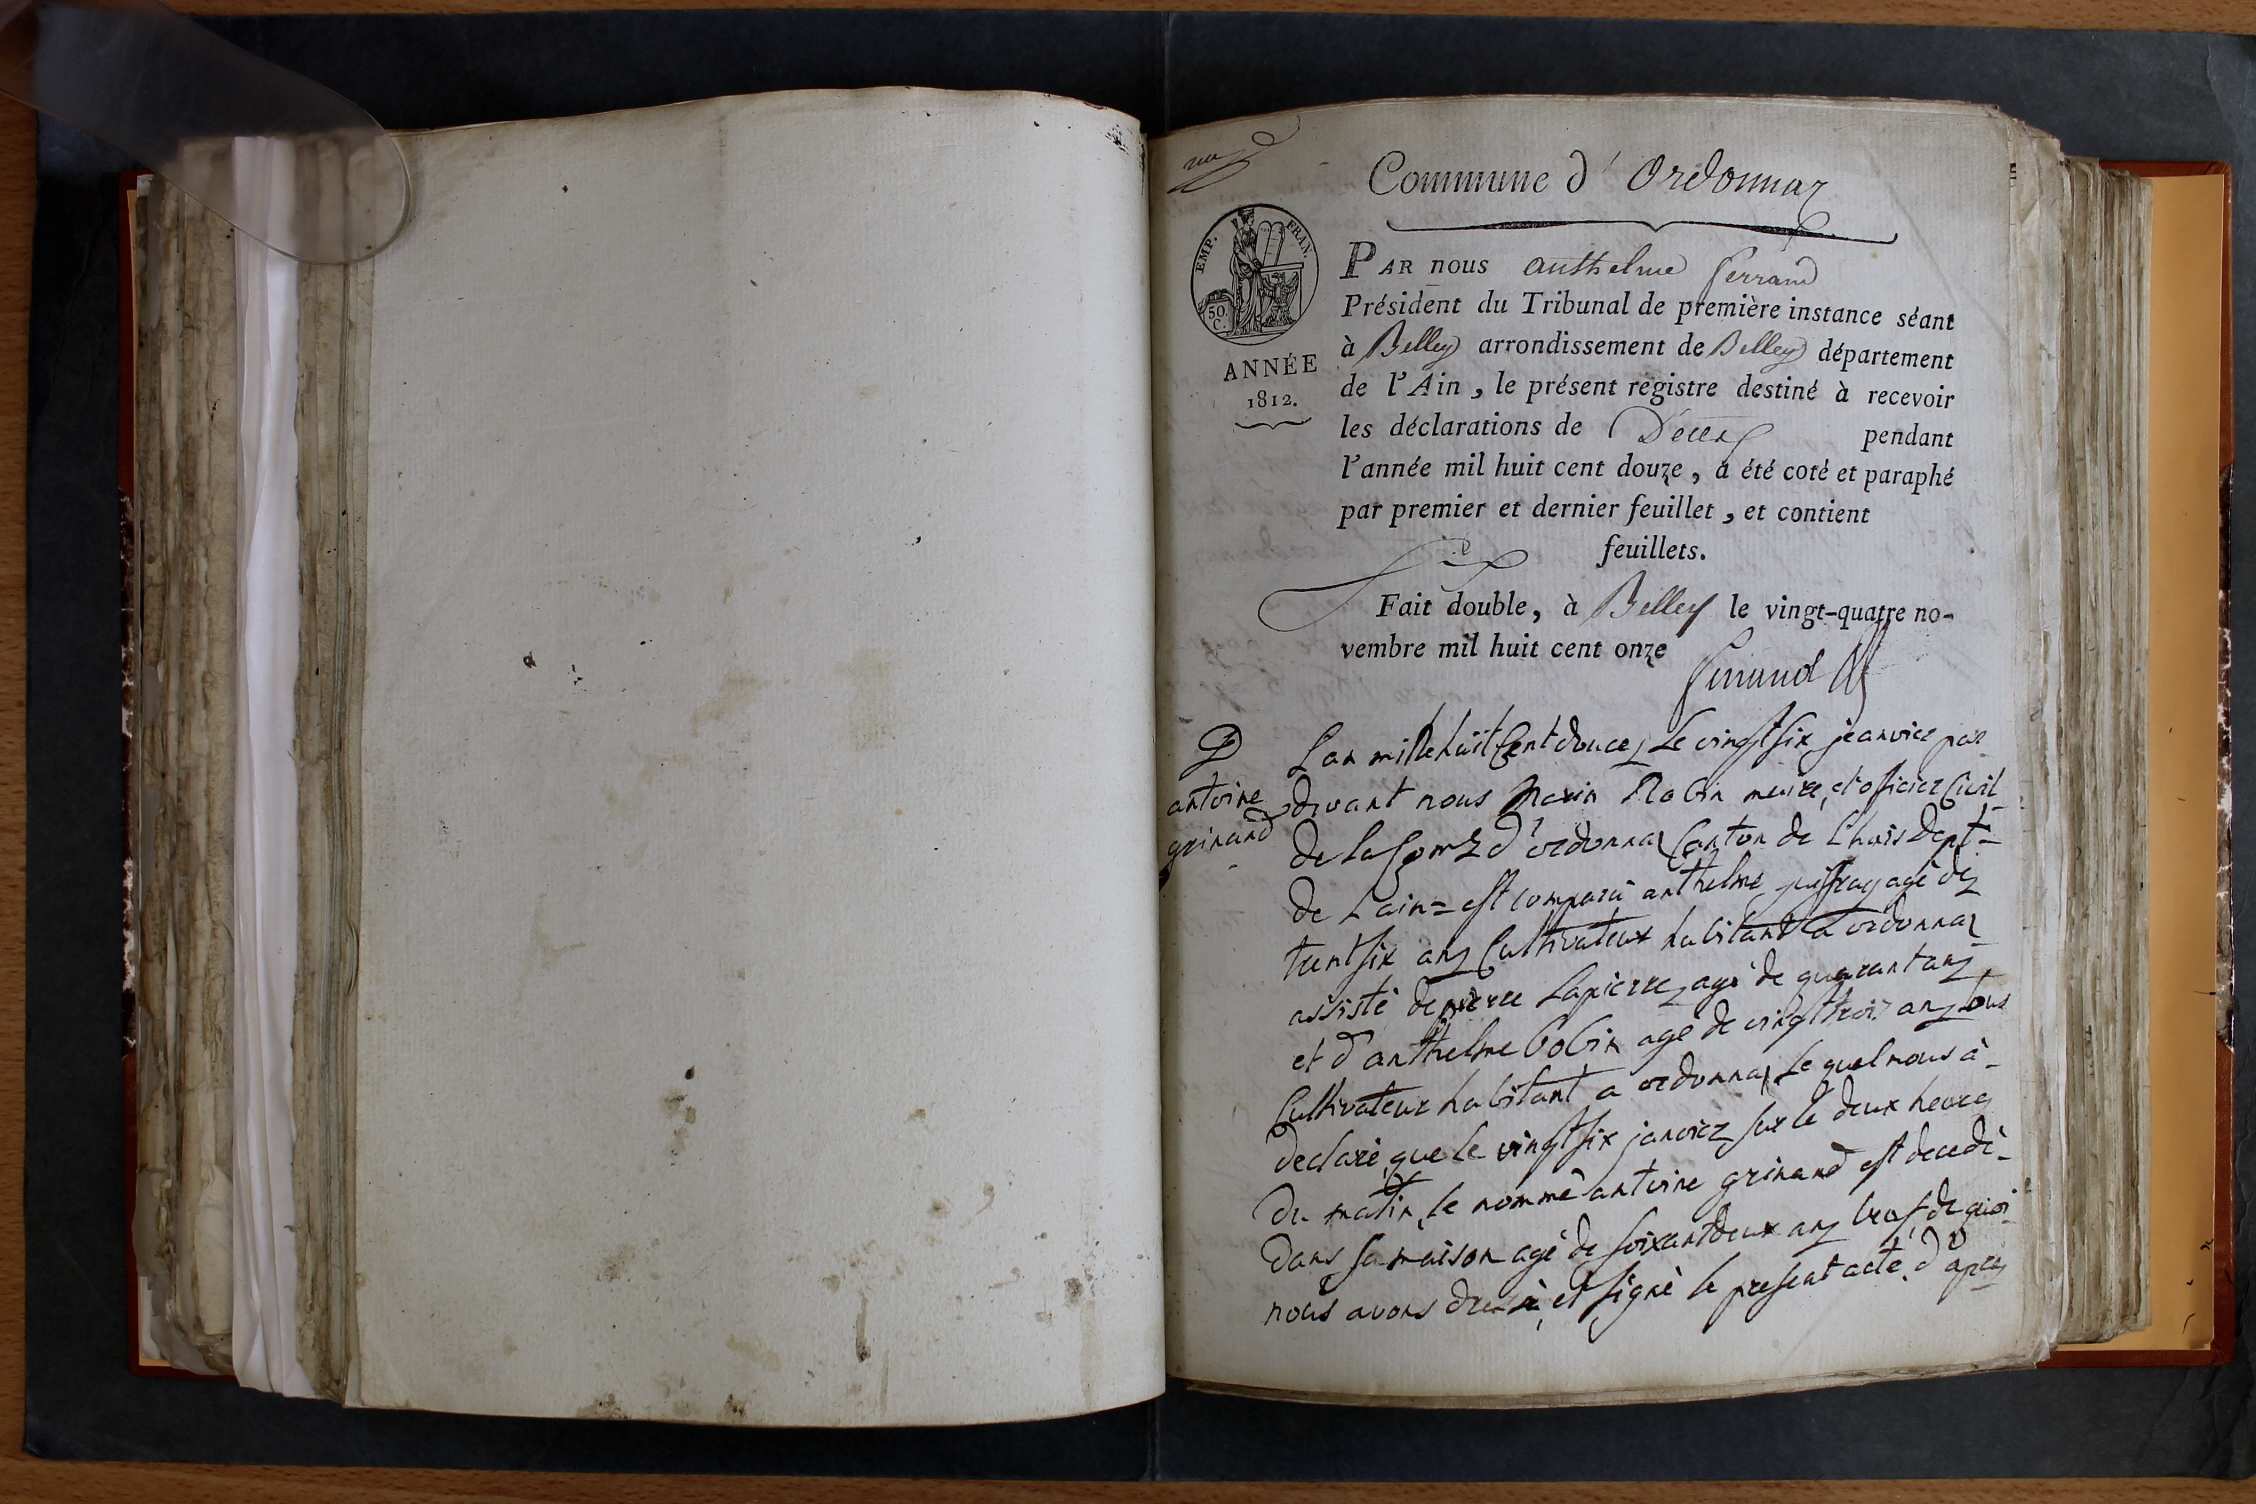 Commune d' Ordonnaz
EMP. FRAN.
50. C.
ANNÉE
1812.
PAR nous anthelme ferrand
Président du Tribunal de première instance séant
à Belley arrondissement de Belley département
de l'Ain, le présent registre destiné à recevoir
les déclarations de Décès pendant
l'année mil huit cent douze, a été coté et paraphé
par premier et dernier feuillet, et contient
feuillets.
Fait double, à Belley le vingt-quatre no-
vembre mil huit cent onze
D
antoine
grinand
Lan mille huit Cent douce, Le vingt six jeanvier par
divant nous Robin meire, et officier Civil
de La Com^e d'ordonnaz Canton de Lhuis Dept=
de Lain= est comparu anthelme juffray agé de
trent six ans Cultivateur habitant a ordonnaz
assisté de pierre Lapierre, agé de quarant ans
et d'anthelme bobin agé de vingt trois ans tous
Cultivateur habitant a ordonnaz Le quel nous à
declaré que le vingt six janvier sur le deux heures
du matin, le nommé antoine grinand est decedé
dans sa maison agé de soixant deux ans de quoi
nous avons dressé, et signé le present acte. d'apres